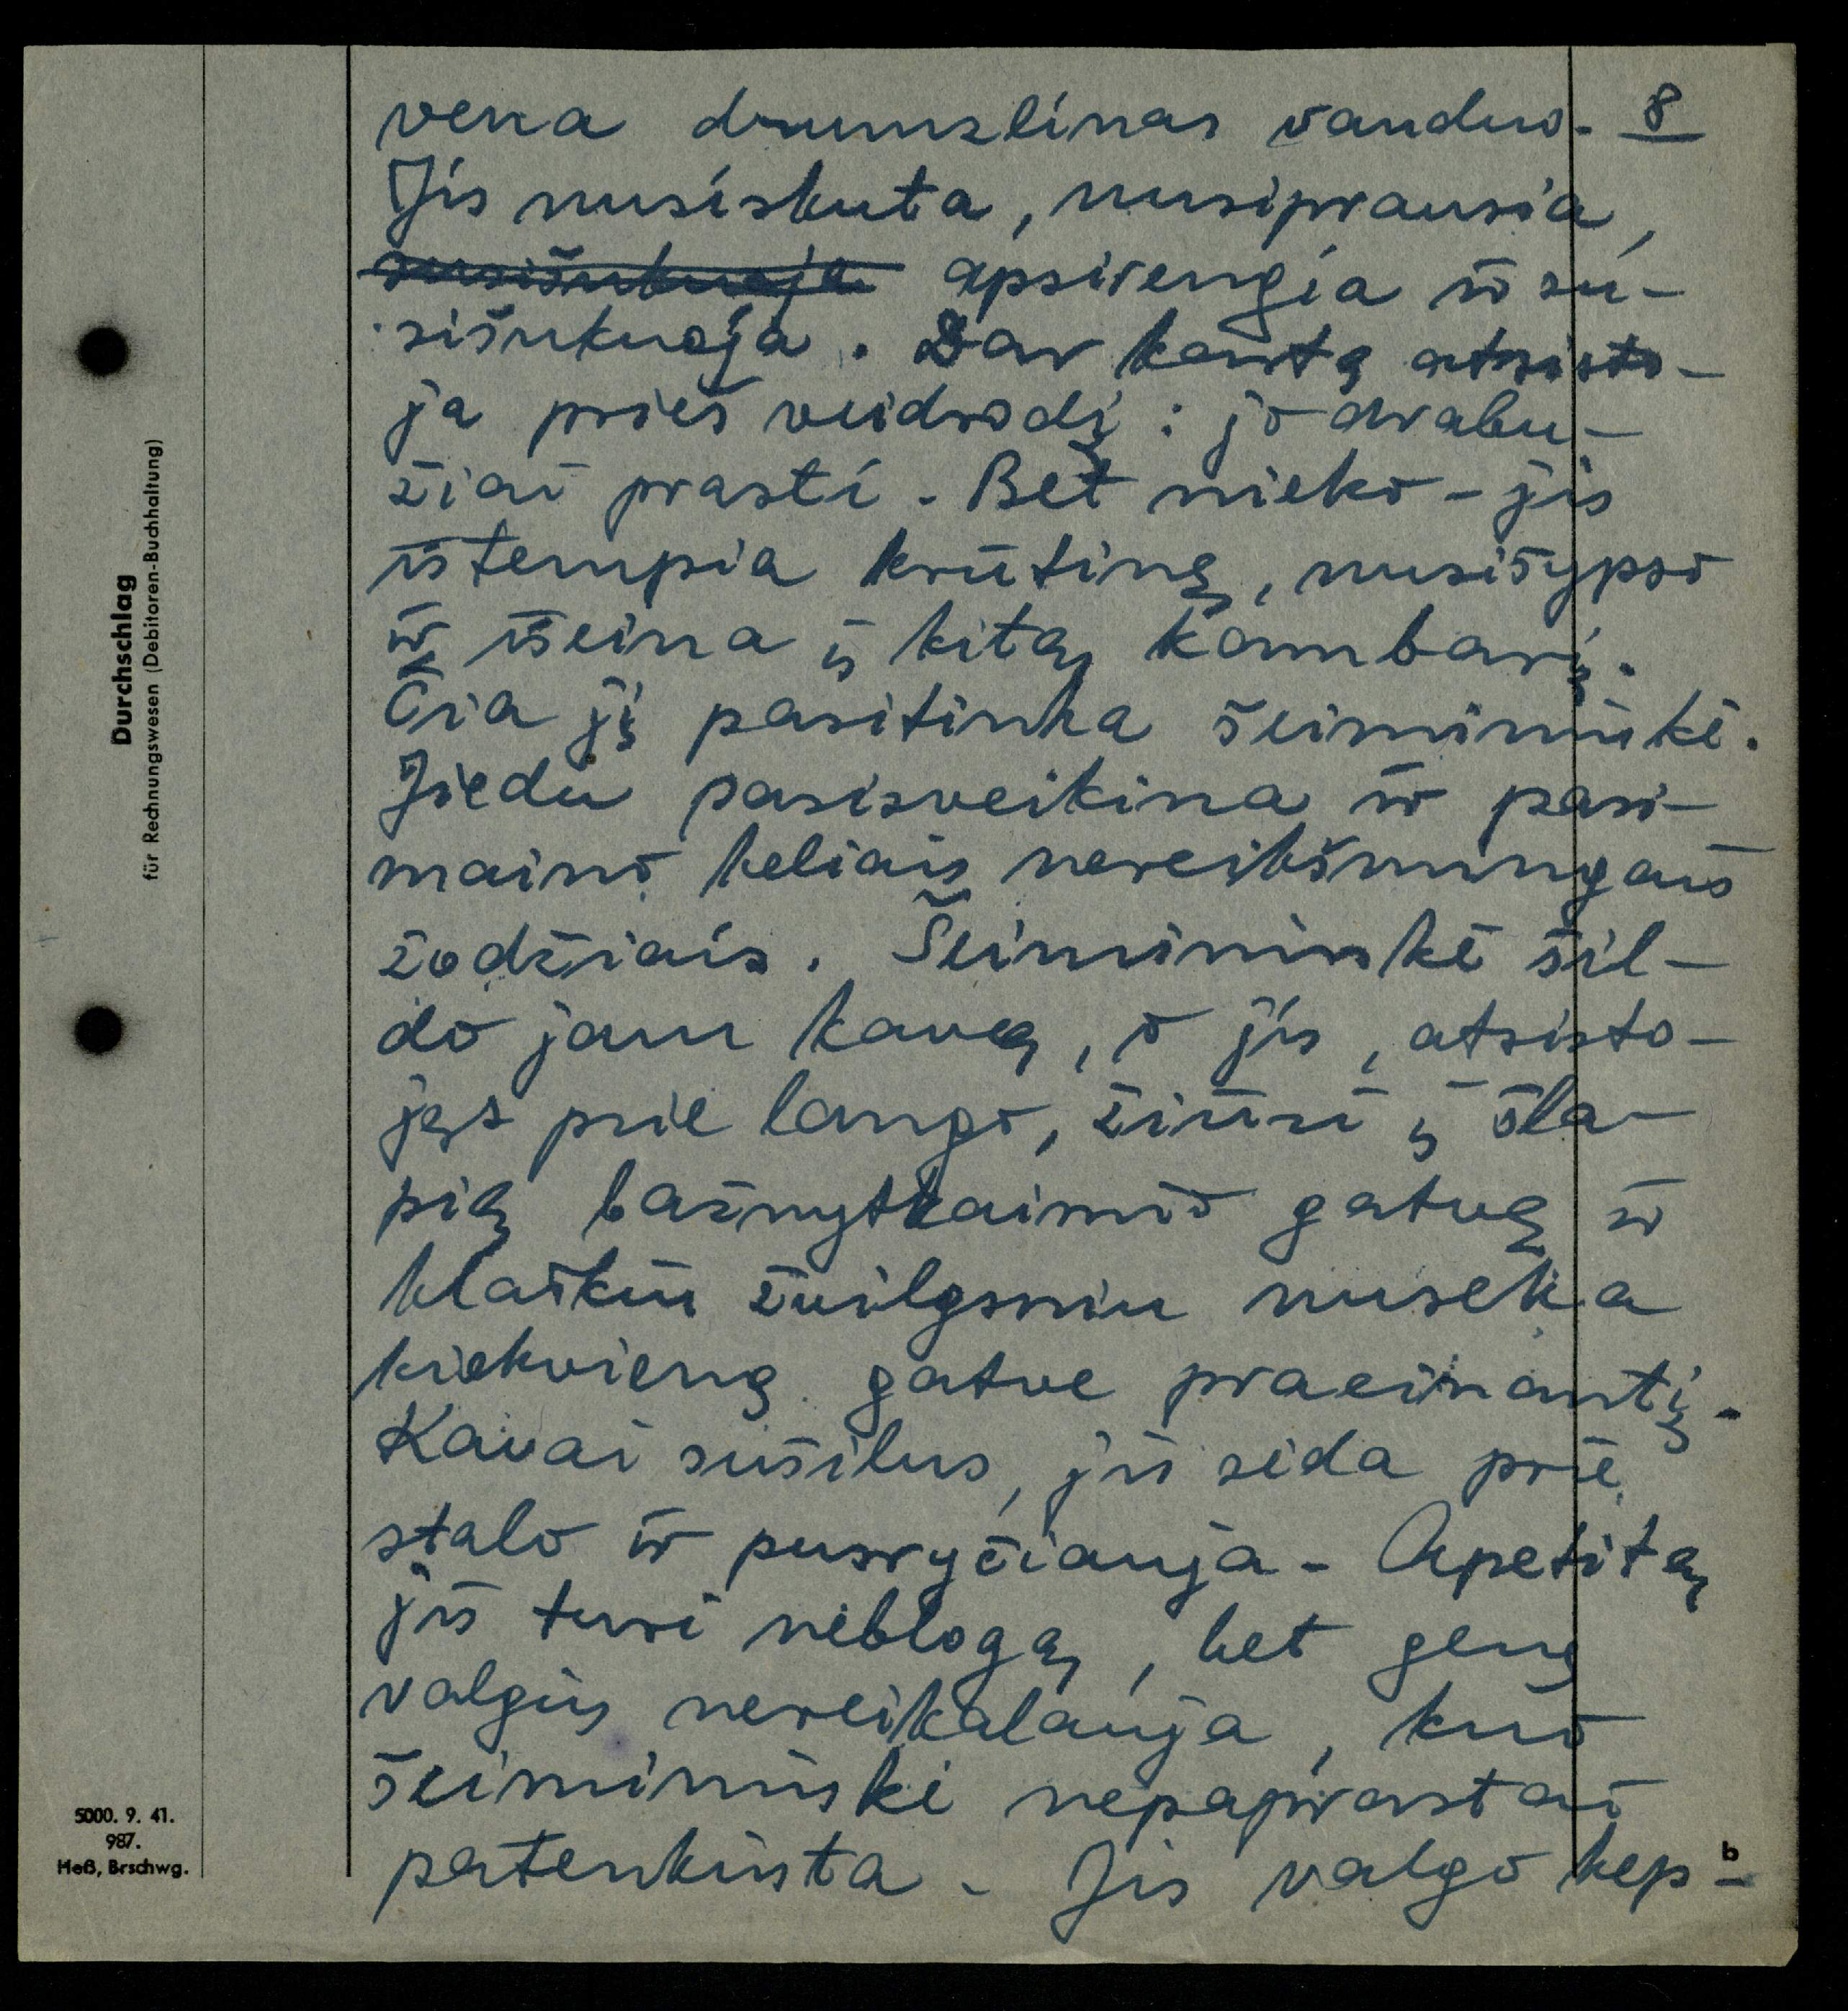 vena drumzlinas vanduo. 8
Jis nusiskuta, nusiprausia,
susišukuoja apsirengia ir su-
sišukuoja. Dar kartą atsisto-
ja prieš veidrodį: jo drabu-
žiai prasti. Bet nieko - jis
ištempia krūtinę, nusišypso
ir išeina į kitą kambarį.
Čia jį pasitinka šeimininkė.
Jiedu pasisveikina ir pasi-
maino keliais nereikšmingais
žodžiais. Šeimininkė šil-
do jam kavą, o jis, atsisto-
jęs prie lango, žiūri į šla-
pią bažnytkaimio gatvę ir
klaikiu žvilgsniu nuseka
kiekvieną gatve praeinantį.
Kavai sušilus, jis sėda prie
stalo ir pusryčiauja. Apetitą
jis turi neblogą, bet gerų
valgių nereikalauja, kuo
šeimininkė nepaprastai
patenkinta. Jis valgo kep-
Durchschlag
für Rechnungswesen (Debitoren-Buchhaltung)
5000. 9. 41.
987.
Heß, Brschwg.
b